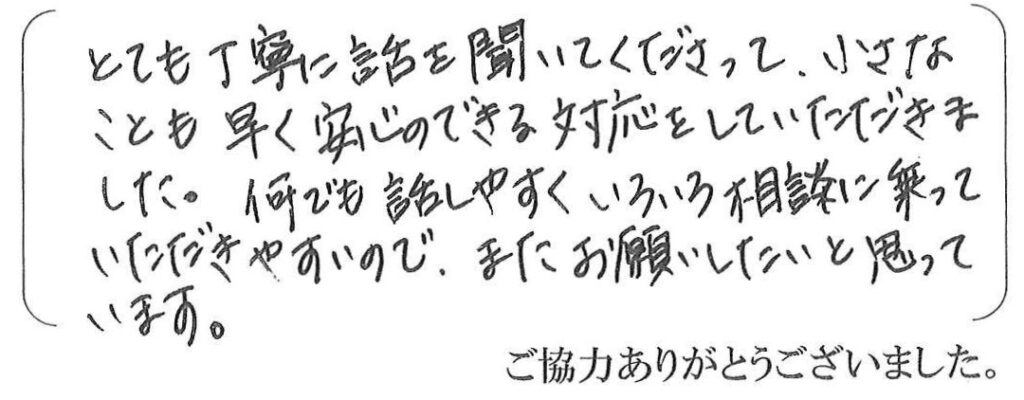 とても丁寧に話を聞いてくださって、小さな
ことも早く安心のできる対応をしていただきま
した。何でも話しやすくいろいろ相談に乗って
いただきやすいので、またお願いしたいと思って
います。
ご協力ありがとうございました。